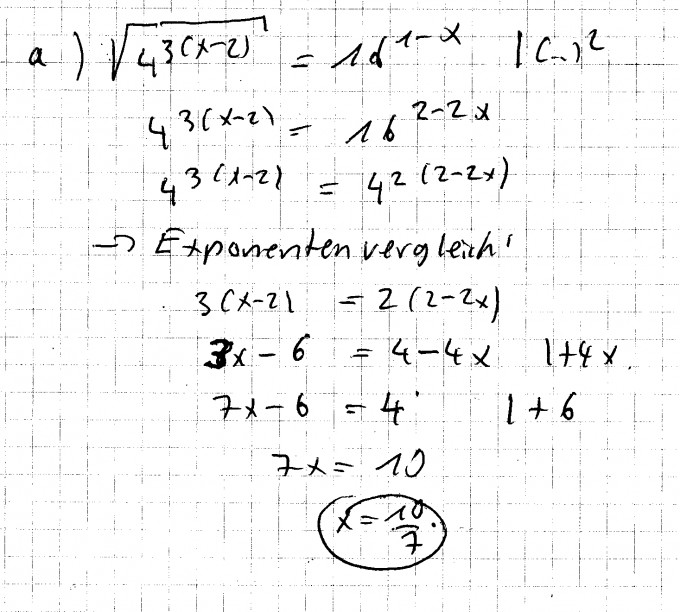 a) √(4^{3(x-2)}) = 16^{1-x} | (..)²
4^{3(x-2)} = 16^{2-2x}
4^{3(x-2)} = 4^{2(2-2x)}
→ Exponentenvergleich!
3(x-2) = 2(2-2x)
3x - 6 = 4 - 4x | +4x
7x - 6 = 4 | + 6
7x = 10
x = 10/7.